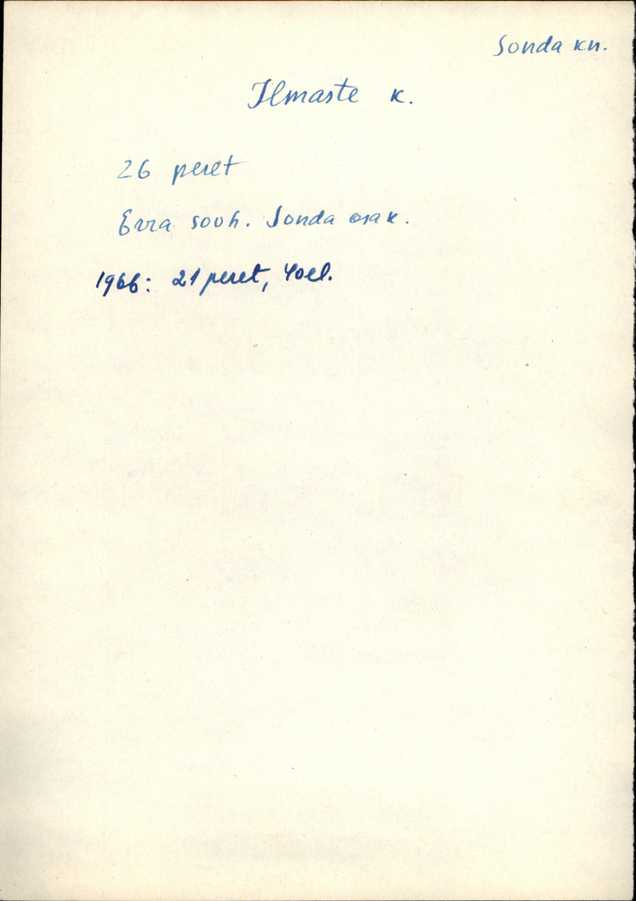 Sonda kn.
Ilmaste k.
26 peret
Erra sovh. Sonda osak.
1966: 21 peret, 40 el.